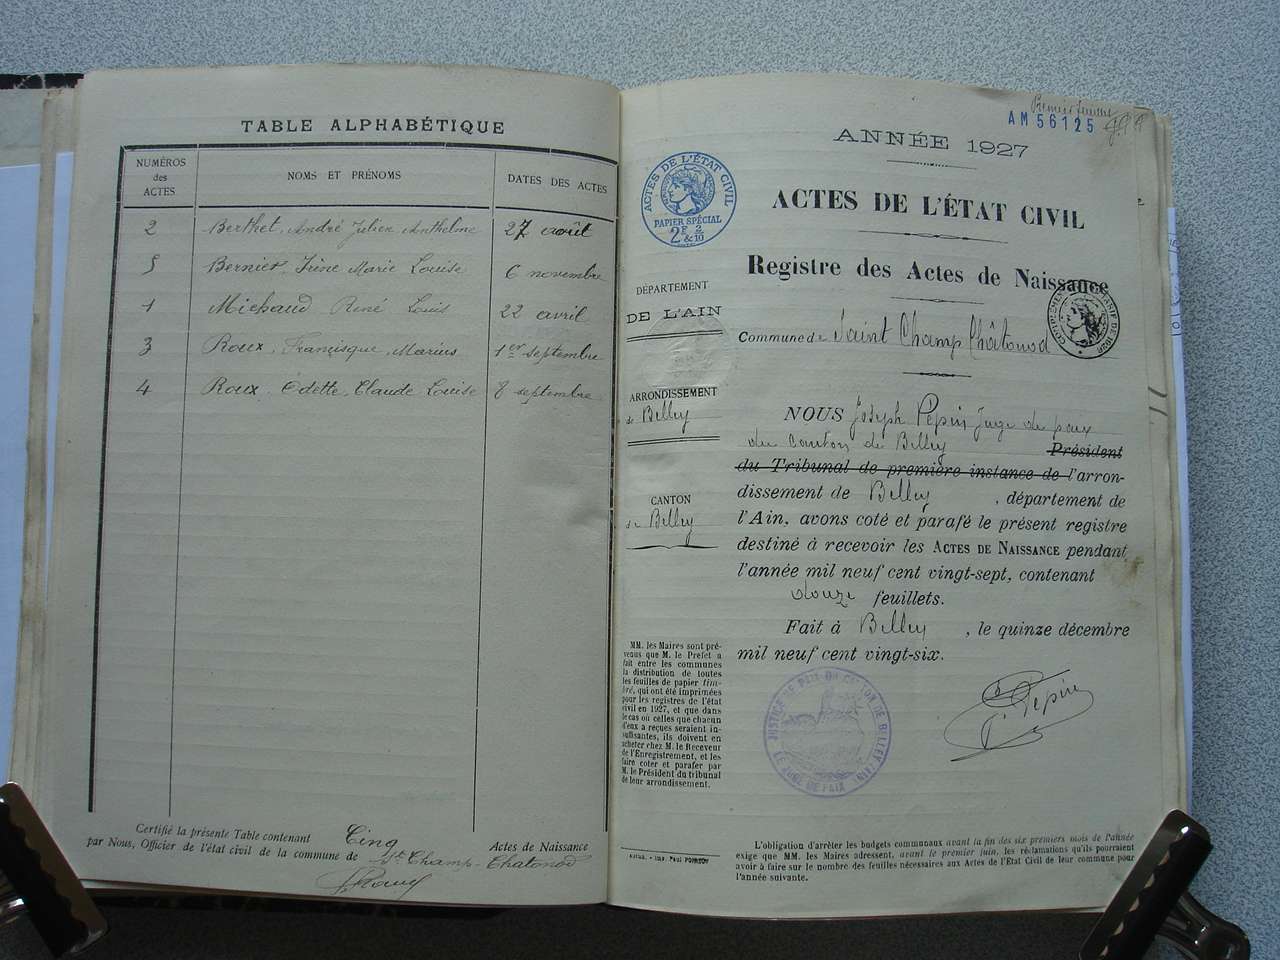 TABLE ALPHABÉTIQUE
NUMÉROS des ACTES
NOMS ET PRÉNOMS
DATES DES ACTES
2 Berthet, André Julien Anthelme 27 août
5 Bernier, Irène Marie Louise 6 novembre
1 Michaud René Louis 22 avril
3 Roux, Françisque, Marius 1er septembre
4 Roux, Odette, Claude, Louise 8 septembre
Certifié la présente Table contenant Cinq Actes de Naissance
par Nous, Officier de l'état civil de la commune de St Champ-Chatonod
Premier
AM 56125
ANNÉE 1927
ACTES DE L'ÉTAT CIVIL
PAPIER SPÉCIAL
2F 2
&10
ACTES DE L'ÉTAT CIVIL
Registre des Actes de Naissance
DÉPARTEMENT
DE L'AIN
Commune de Saint Champ Châtonod
ARRONDISSEMENT
de Belley
CANTON
de Belley
NOUS Joseph Pépin Juge de paix
du Canton de Belley Président
du Tribunal de première instance de l'arron-
dissement de Belley, département de
l'Ain, avons coté et parafé le présent registre
destiné à recevoir les ACTES DE NAISSANCE pendant
l'année mil neuf cent vingt-sept, contenant
douze feuillets.
Fait à Belley, le quinze décembre
mil neuf cent vingt-six.
Pépin
JUSTICE DE PAIX DU CANTON DE BELLEY (AIN)
LE JUGE DE PAIX
MM. les Maires sont pré-
venus que M. le Préfet a
fait entre les communes
la distribution de toutes
les feuilles de papier tim-
bré, qui ont été imprimées
pour les registres de l'état
civil en 1927, et que dans
le cas où celles que chacun
d'eux a reçues seraient in-
suffisantes, ils doivent en
acheter chez M. le Receveur
de l'Enregistrement, et les
faire coter et parafer par
M. le Président du tribunal
de leur arrondissement.
L'obligation d'arrêter les budgets communaux avant la fin des six premiers mois de l'année
exige que MM. les Maires adressent, avant le premier juin, les réclamations qu'ils pourraient
avoir à faire sur le nombre des feuilles nécessaires aux Actes de l'État Civil de leur commune pour
l'année suivante.